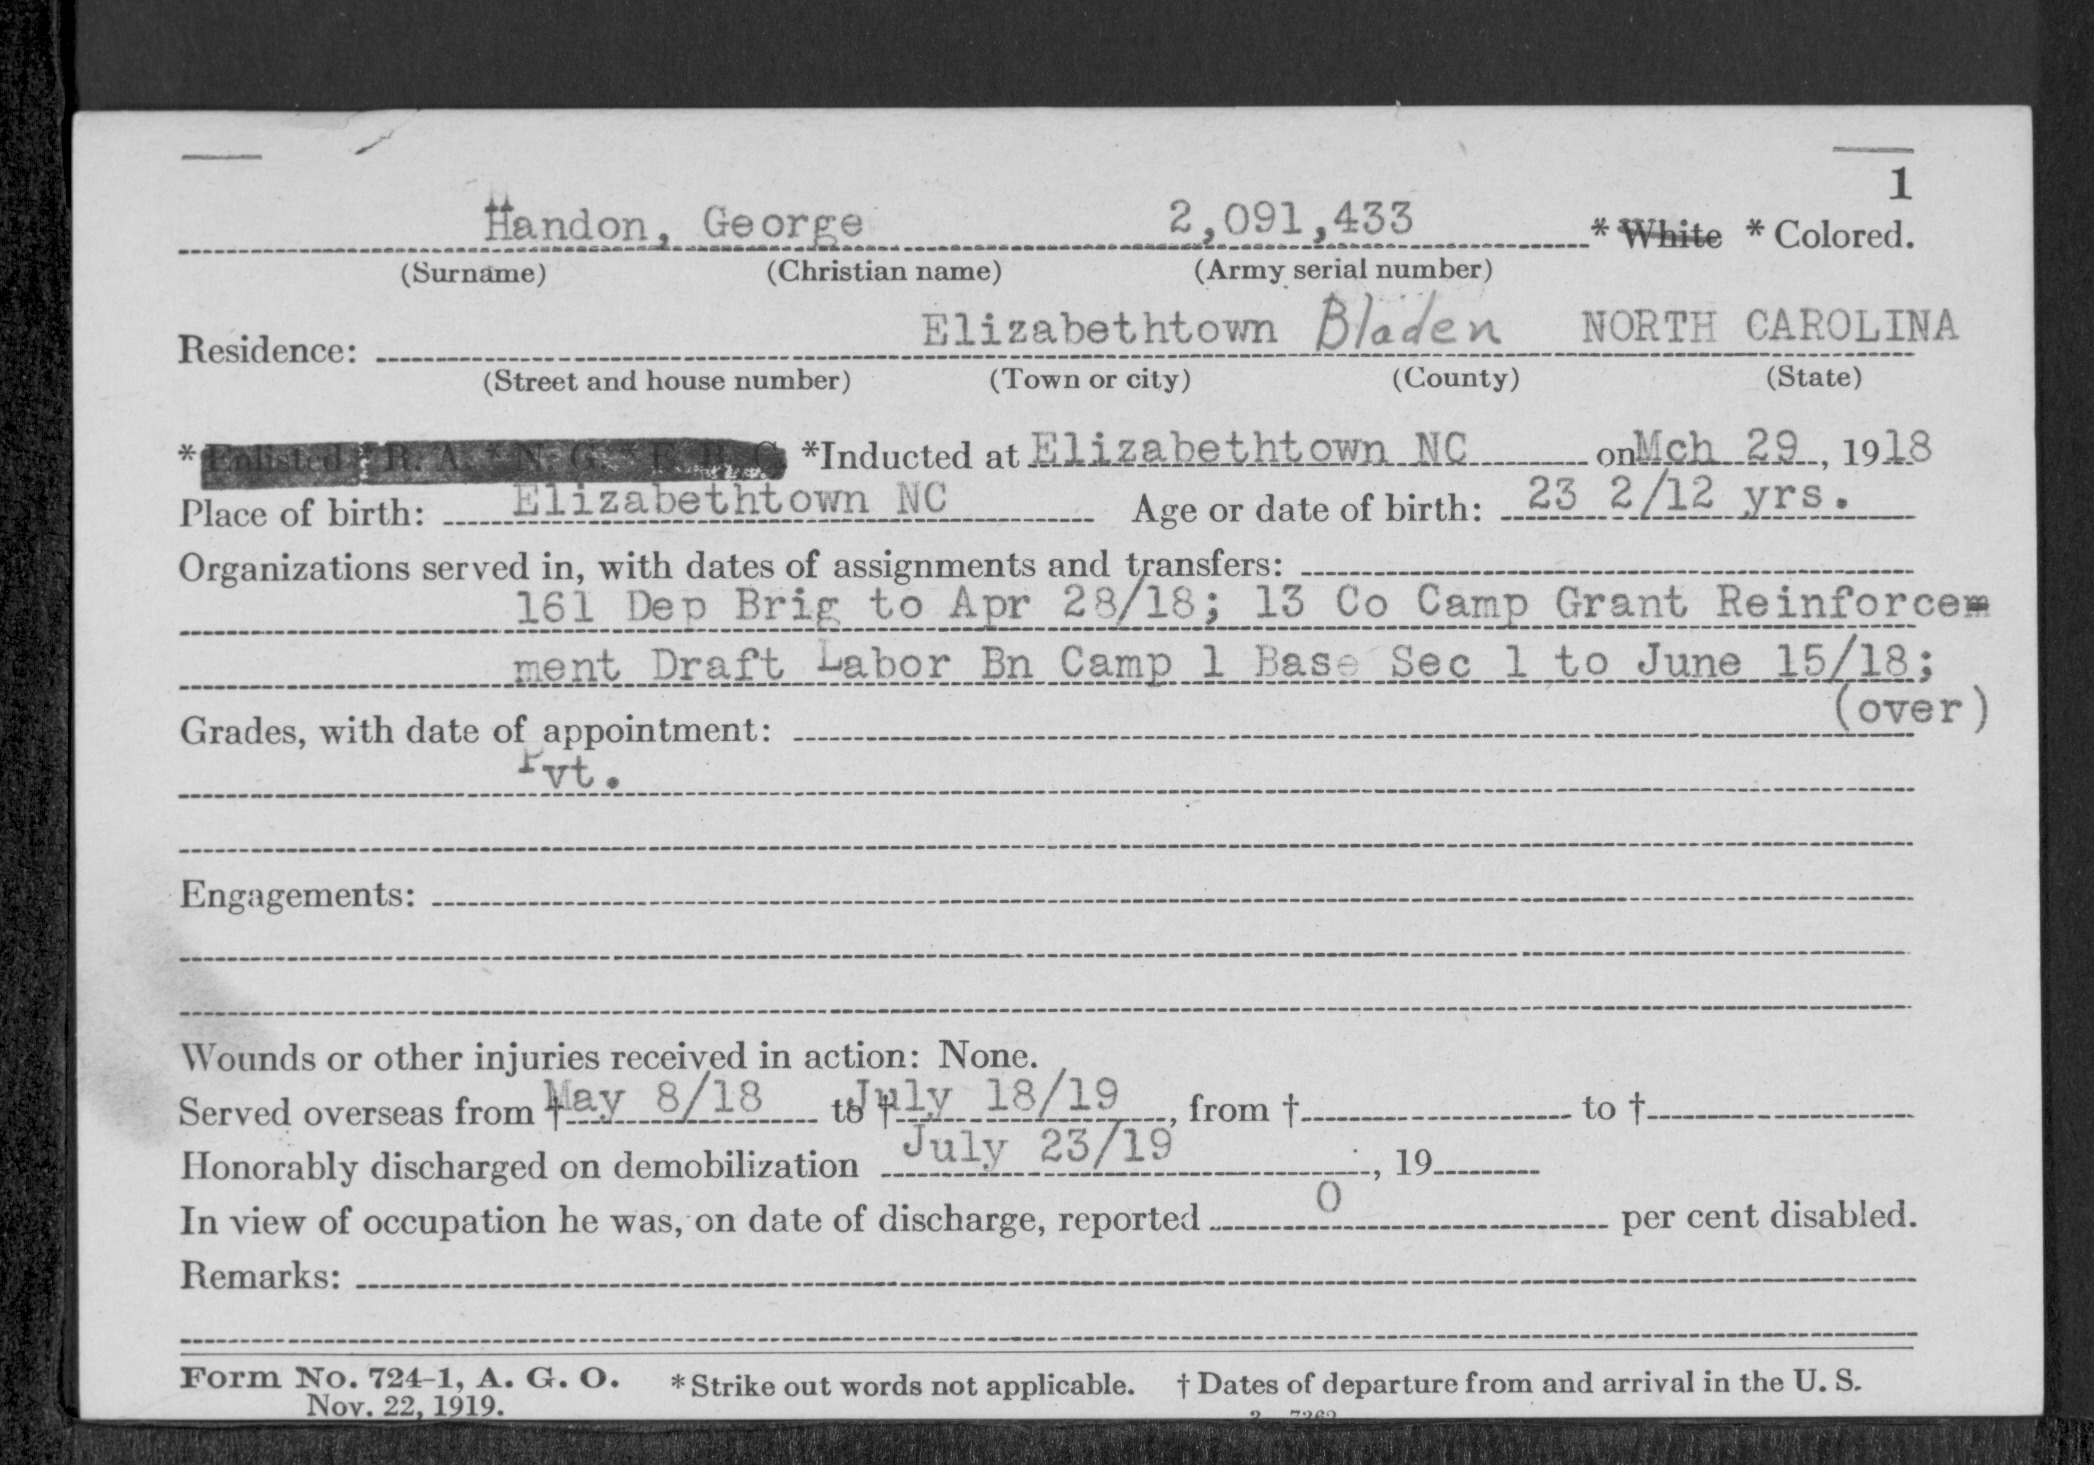 1
Handon, George 2,091,433 * White * Colored.
(Surname) (Christian name) (Army serial number)
Residence: Elizabethtown Bladen NORTH CAROLINA
(Street and house number) (Town or city) (County) (State)
* Enlisted * R. A. * N. G. * E. R. C. *Inducted at Elizabethtown NC on Mch 29, 1918
Place of birth: Elizabethtown NC Age or date of birth: 23 2/12 yrs.
Organizations served in, with dates of assignments and transfers:
161 Dep Brig to Apr 28/18; 13 Co Camp Grant Reinforce
ment Draft Labor Bn Camp 1 Base Sec 1 to June 15/18;
(over)
Grades, with date of appointment:
Pvt.
Engagements:
Wounds or other injuries received in action: None.
Served overseas from † May 8/18 to † July 18/19, from † to †
Honorably discharged on demobilization July 23/19, 19
In view of occupation he was, on date of discharge, reported 0 per cent disabled.
Remarks:
Form No. 724-1, A. G. O. * Strike out words not applicable. † Dates of departure from and arrival in the U. S.
Nov. 22, 1919.